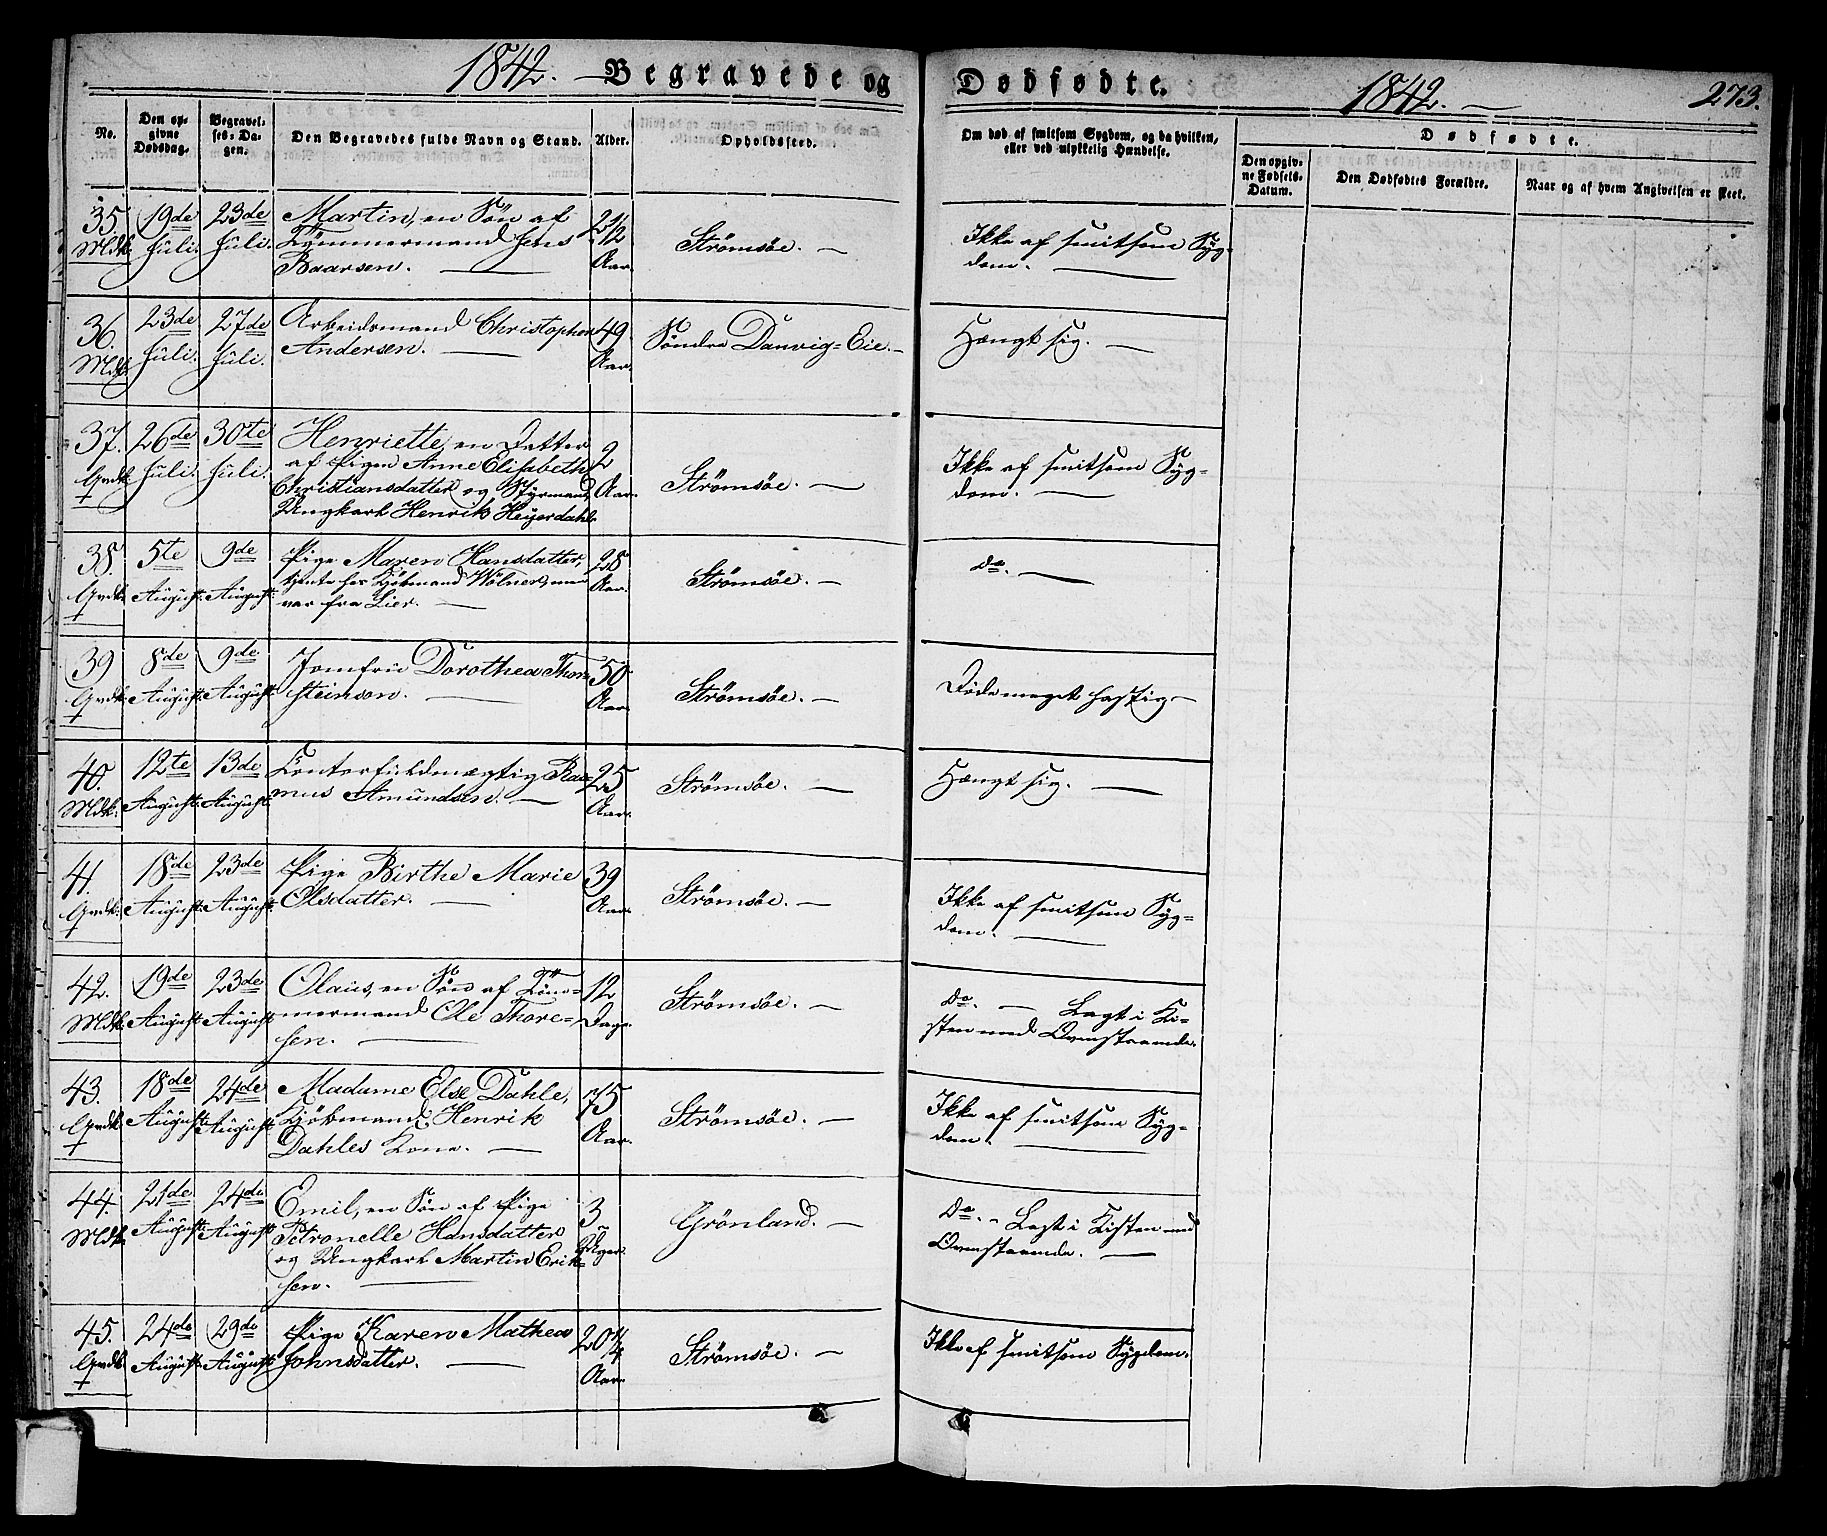 1842. Begravede og
Dødfødte. 1842. 273.
No.
Den opgivne Dødsdag.
Begravelses-Dagen.
Den Begravedes fulde Navn og Stand.
Alder.
Opholdssted.
Om død af smitsom Sygdom, og da hvilken, eller ved ulykkelig Hændelse.
Dødfødte.
Den opgivne Fødsels-Datum.
Den Dødfødtes Forældre.
Naar og af hvem Angivelsen er skeet.
35. 19de 23de Martin, en Søn af 2
Mdk. Juli. Juli. Tømmermand Jens Strömsöe. Ikke af smitsom Syg-
Baarsen. Aar. dom.
36. 23de 27de Arbeidsmand Christopher 49 Söndre Danvig-Eie. Hængt sig.
Mdk. Juli. Juli. Andersen. Aar.
37. 26de 30te Henriette, en Datter 2
Qvdk. Juli. Juli. af Pigen Anne Elisabeth Strömsöe. Ikke af smitsom Syg-
Christiansdatter og Styrmand Aar. dom.
Ungkarl Henrik Heyerdahl.
38. 5te 9de Pige Maren Hansdatter, 28
Qvdk. August. August. tjente hos Kjöbmand Wölner, men Aar. Strömsöe. do.
var fra Lier.
39 8de 9de Jomfru Dorothea Thor- 50
Qvdk. August. August. steinson. Aar. Strömsöe. Døde meget hastig.
40. 12te 13de Contorfuldmægtig Ras- 25 Strömsöe. Hængt sig.
Mdk. August. August. mus Amundsen. Aar.
41. 18de 23de Pige Birthe Marie 39 Strömsöe. Ikke af smitsom Syg-
Qvdk. August. August. Olsdatter. Aar. dom.
42. 19de 23de Olaus, en Søn af Töm- 12 Strömsöe. Do. Lagt i Ki-
Mdk. August. August. mermand Ole Thore- Dage. sten med Ovenstaaende.
sen.
43. 18de 24de Madame Else Dahle, 75
Qvdk. August. August. Kjöbmand Henrik Strömsöe. Ikke af smitsom Syg-
Dahles Kone. Aar. dom.
44. 21de 24de Emil, en Søn af Pige 3 Grönland. Do. Lagt i Kisten med
Mdk. August. August. Petronelle Hansdatter Uger. Ovenstaaende.
og Ungkarl Martin Erik-
sen.
45. 24de 29de Pige Karen Mathea 20 1/4 Strömsöe. Ikke af smitsom Sygdom.
Qvdk. August. August. Johnsdatter. Aar.